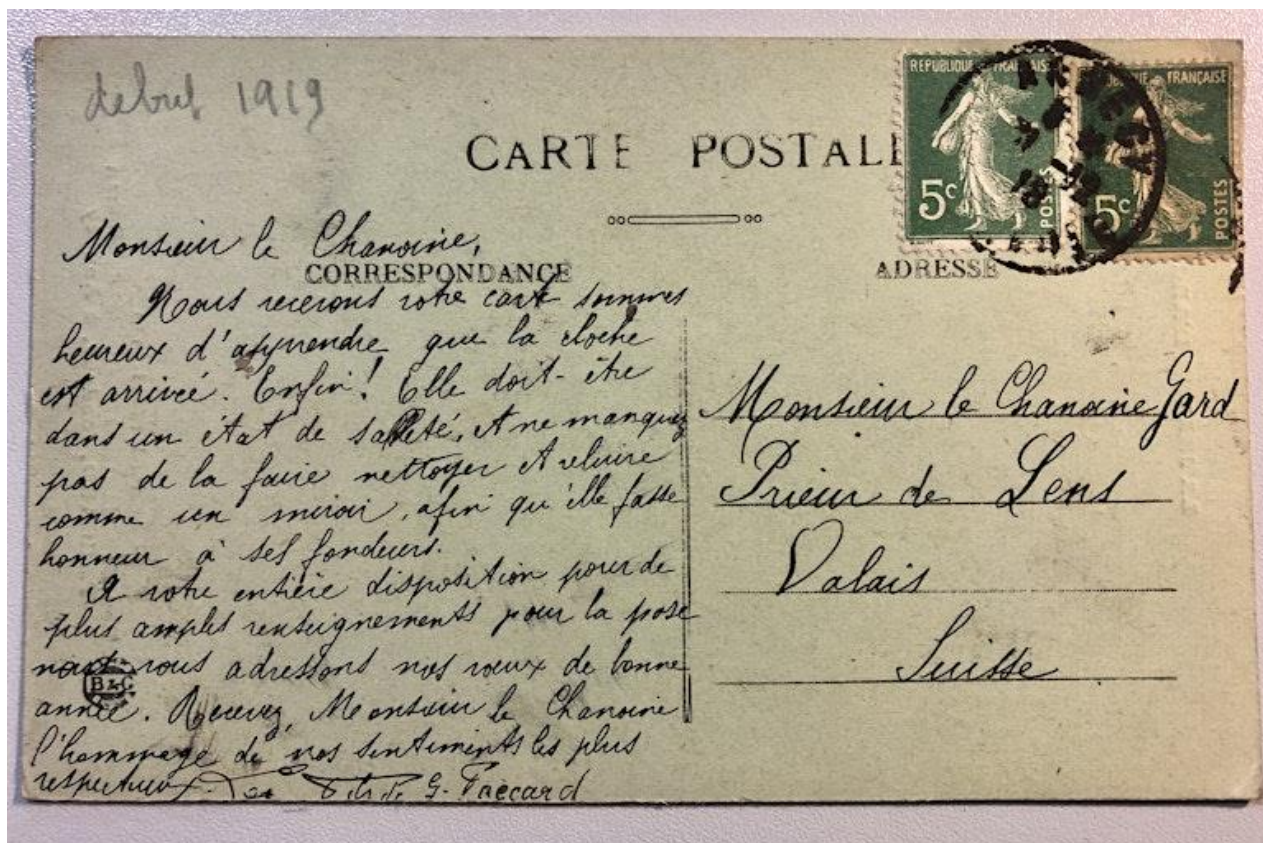 début 1919
CARTE POSTALE
REPUBLIQUE FRANÇAISE
5c
POSTES
FRANÇAISE
5c
POSTES
ANNECY
Monsieur le Chanoine,
CORRESPONDANCE
Nous recevons votre carte sommes
heureux d'apprendre que la cloche
est arrivée. Enfin! Elle doit-être
dans un état de saleté, et ne manquez
pas de la faire nettoyer et reluire
comme un miroir, afin qu'elle fasse
honneur à ses fondeurs.
A votre entière disposition pour de
plus amples renseignements pour la pose
nous vous adressons nos vœux de bonne
année. Recevez, Monsieur le Chanoine
l'hommage de nos sentiments les plus
respectueux. Les Fils de G. Paccard
B&C
ADRESSE
Monsieur le Chanoine Gard
Prieur de Lens
Valais
Suisse